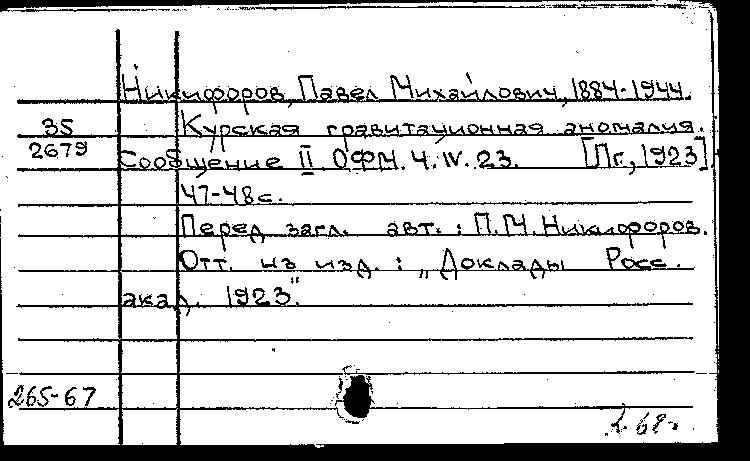 Никифоров, Павел Михайлович, 1884-1944.
35 Курская гравитационная аномалия.
2679 Сообщение II ОФМ. 4.IV.23. [Пг., 1923]
47-48 с.
Перед загл. авт.: П.М. Никифоров.
Отт. из изд.: „Доклады Росс.
акад. 1923."
265-67